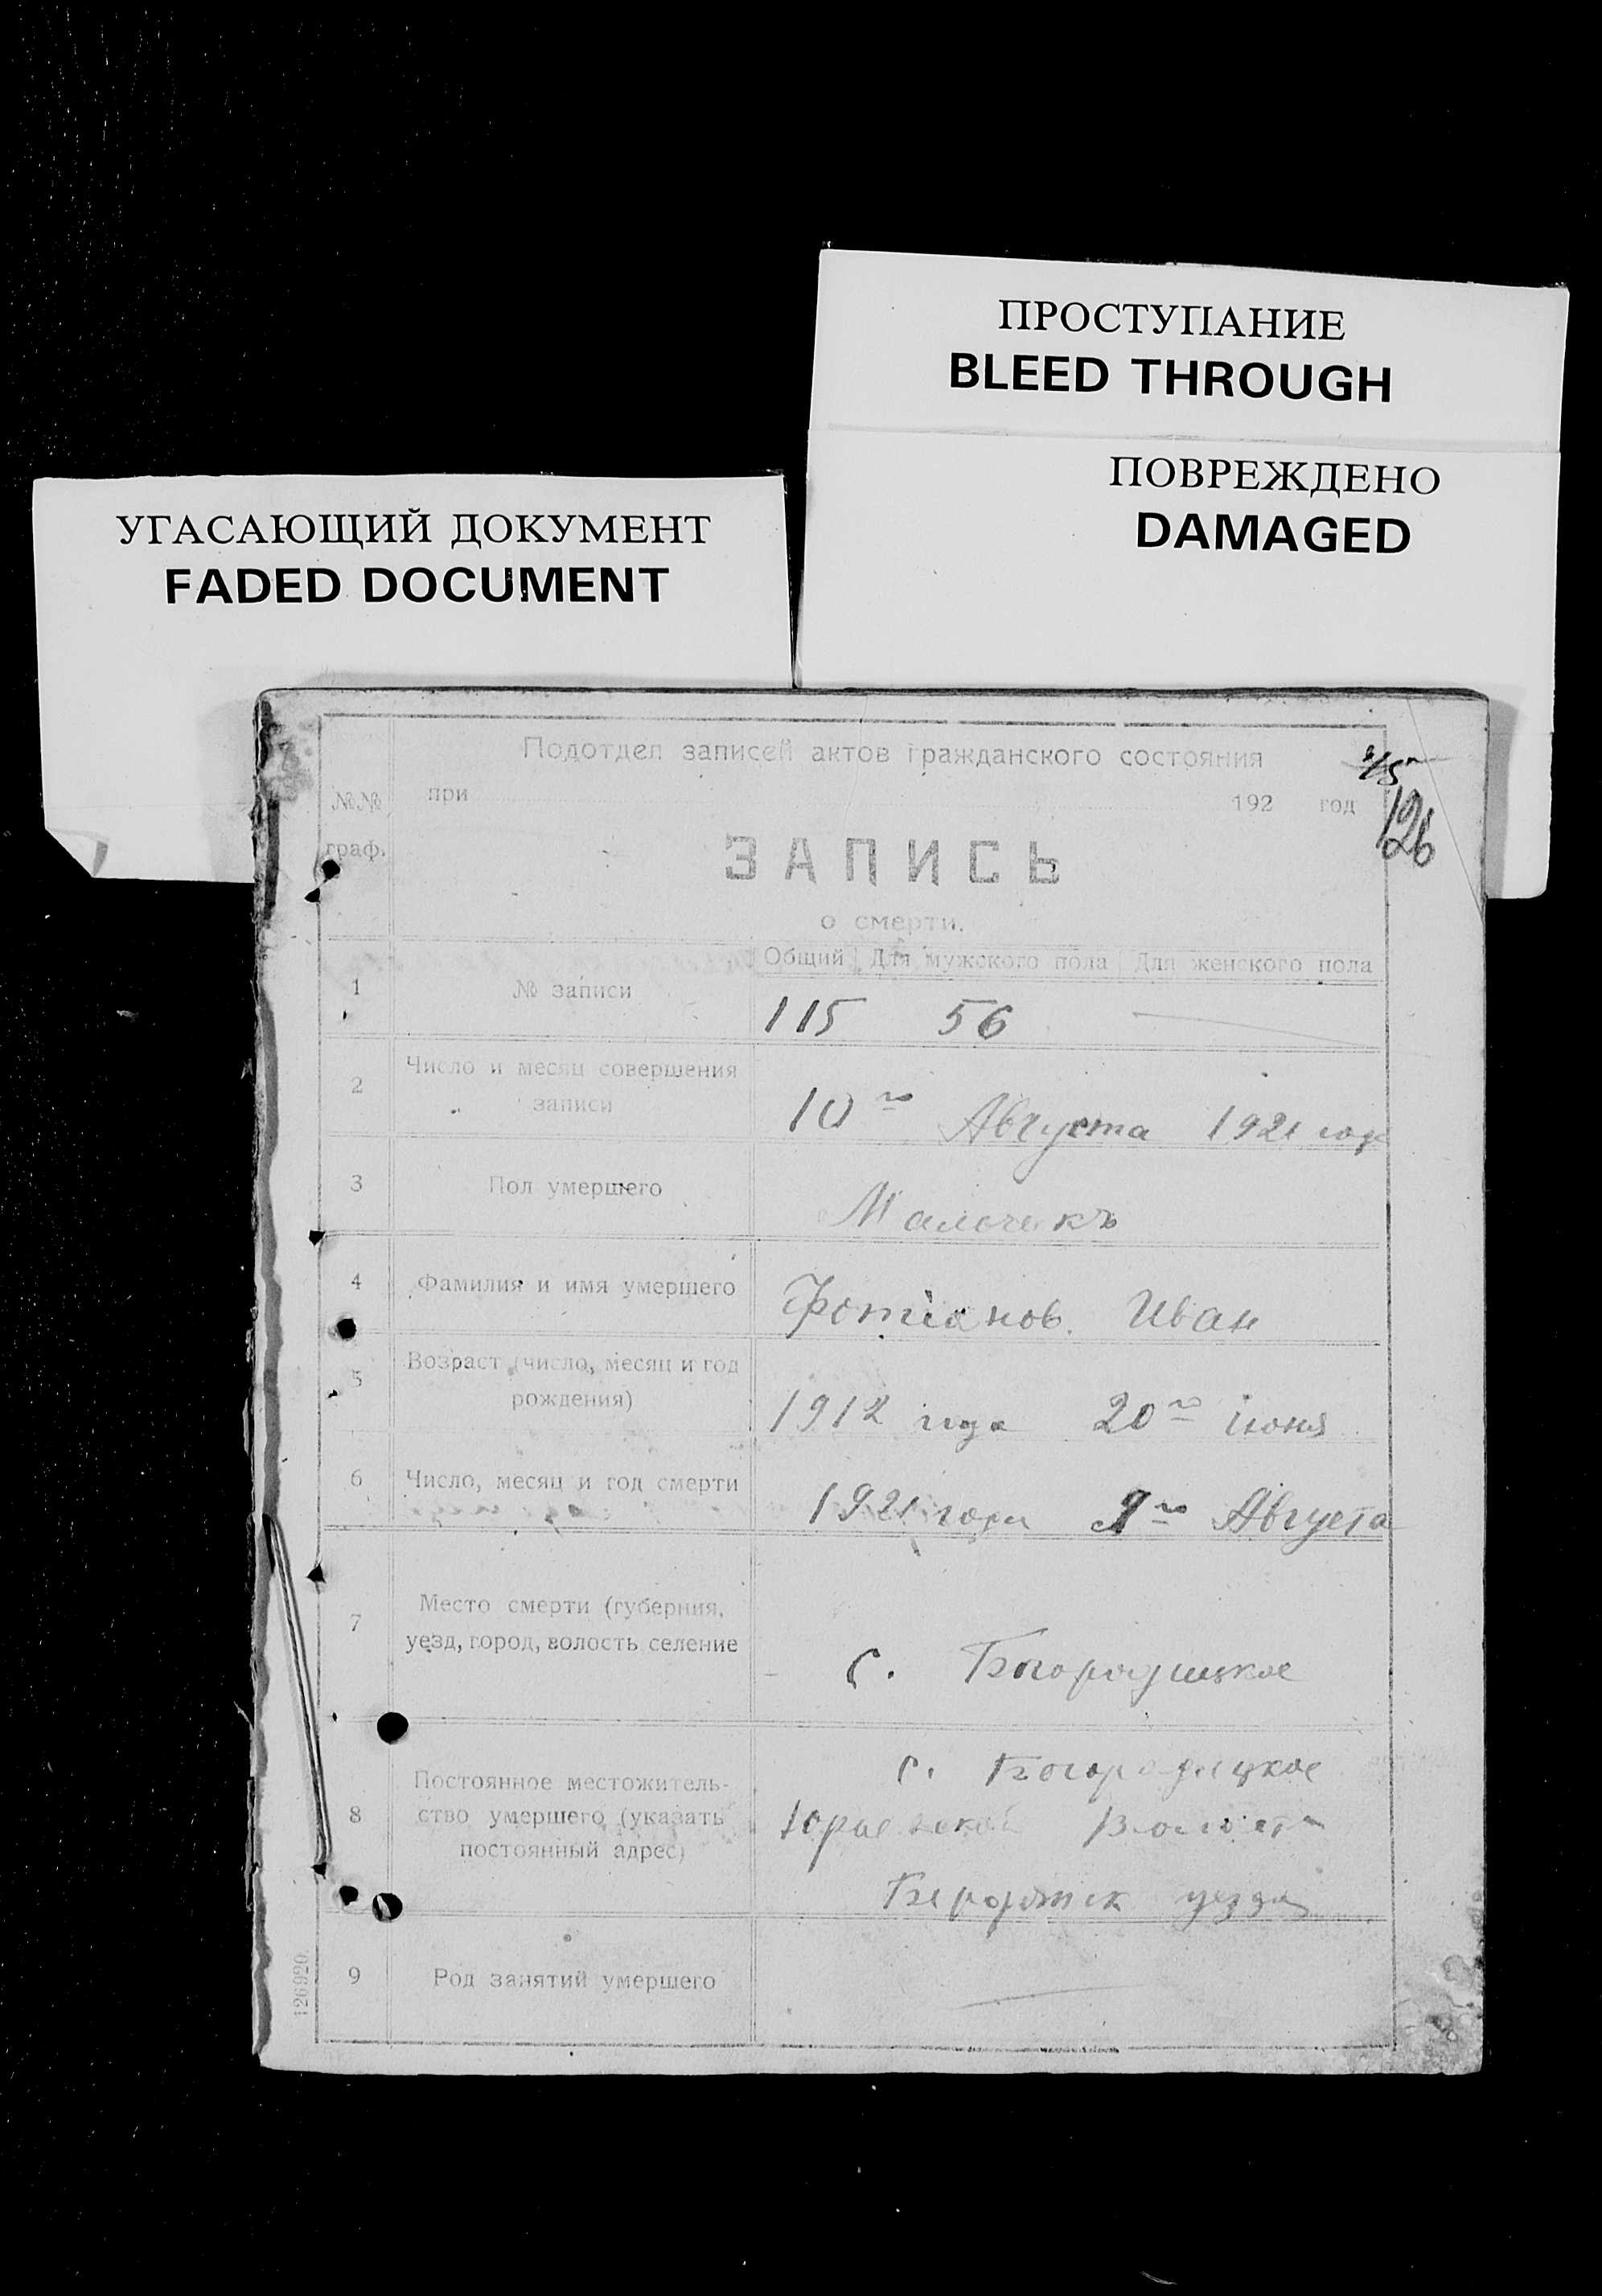 ПРОСТУПАНИЕ
BLEED THROUGH
ПОВРЕЖДЕНО
DAMAGED
УГАСАЮЩИЙ ДОКУМЕНТ
FADED DOCUMENT
Подотдел записей актов гражданского состояния
№№ граф.
при 192 год
126
ЗАПИСЬ
о смерти.
Общий Для мужского пола Для женского пола
1 № записи 115 56
2 Число и месяц совершения
записи
10го Августа 1921 года
3 Пол умершего Мальчикъ
4 Фамилия и имя умершего Фотианов Иван
5 Возраст (число, месяц и год
рождения)
1912 года 20го июня
6 Число, месяц и год смерти 1921 года 9го Августа
7 Место смерти (губерния,
уезд, город, волость селение
с. Богородицкое
8 Постоянное местожитель-
ство умершего (указать
постоянный адрес)
с. Богородицкое
Волости
уезда
9 Род занятий умершего
126920